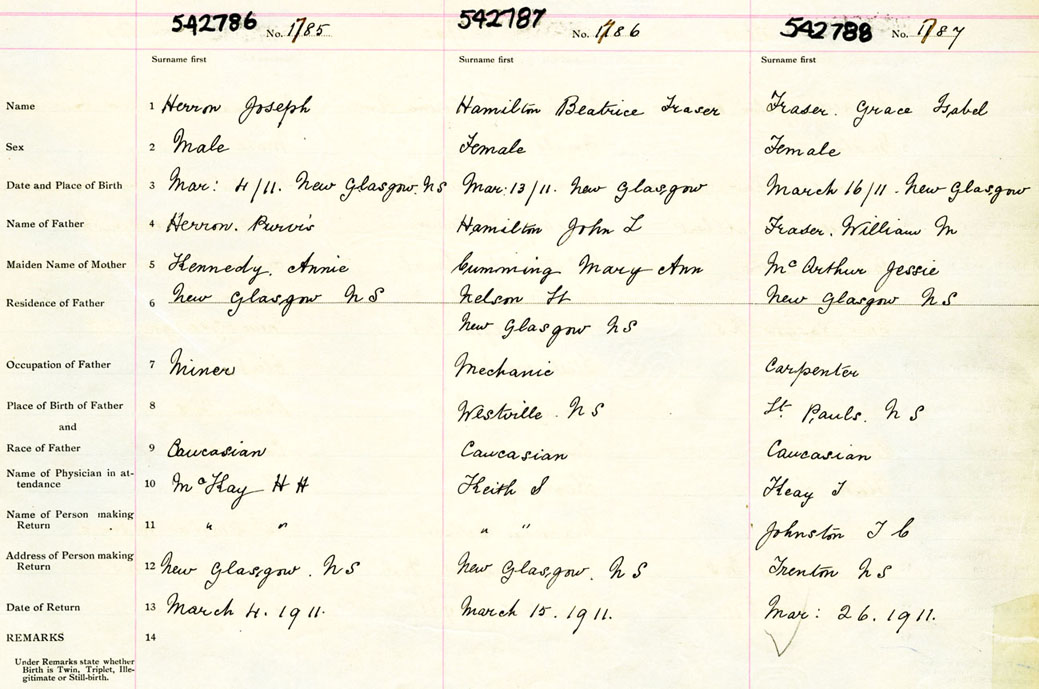 542786 No. 1785 542787 No. 1786 542788 No. 1787
Surname first Surname first Surname first
Name 1 Herron Joseph Hamilton Beatrice Fraser Fraser. Grace Isabel
Sex 2 Male Female Female
Date and Place of Birth 3 Mar: 4/11. New Glasgow. NS Mar: 13/11. New Glasgow March 16/11. New Glasgow
Name of Father 4 Herron. Purvis Hamilton John L Fraser. William M
Maiden Name of Mother 5 Kennedy. Annie Cumming Mary Ann McArthur Jessie
Residence of Father 6 New Glasgow NS Nelson St New Glasgow NS
New Glasgow NS
Occupation of Father 7 Miner Mechanic Carpenter
Place of Birth of Father 8 Westville. NS St. Pauls. NS
and
Race of Father 9 Caucasian Caucasian Caucasian
Name of Physician in at-
tendance 10 McKay H H Keith S Keay T
Name of Person making
Return 11 " " " " Johnston T C
Address of Person making
Return 12 New Glasgow. NS New Glasgow. NS Trenton NS
Date of Return 13 March 4. 1911. March 15. 1911. Mar: 26. 1911.
REMARKS 14
Under Remarks state whether
Birth is Twin, Triplet, Ille-
gitimate or Still-birth.